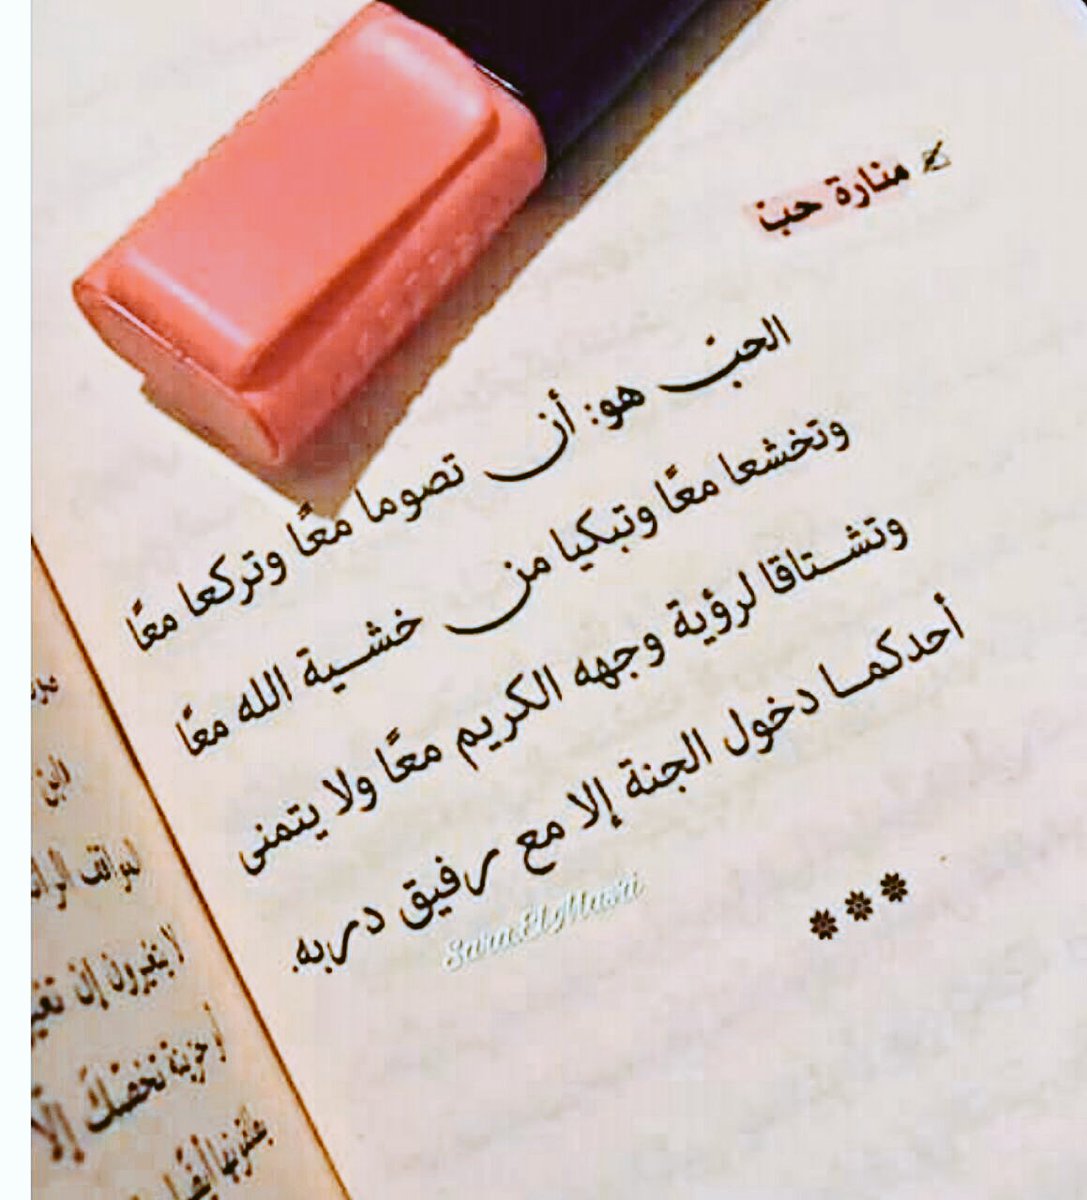 منارة حب
الحب هو: أن تصوما معًا وتركعا معًا
وتخشعا معًا وتبكيا من خشية الله معًا
وتشتاقا لرؤية وجهه الكريم معًا ولا يتمنى
أحدكما دخول الجنة إلا مع رفيق دربه.
Sara El Masri
لا يتغيرون إن